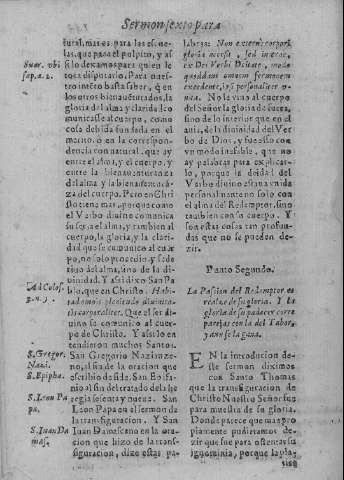 Sermon sexto para
tural, mas es para las escue-
las, que para el pulpito, y assi
solo dexamos para quien le
toca disputarlo. Para nues-
tro intento basta saber, q̃ en
los otros bienauenturados, la
gloria del alma y claridad se co
municasse al cuerpo, como
cosa debida fundada en el
merito, ò en la correspon-
dencia connatural, que ay
entre el alma, y el cuerpo, y
entre la bienauenturança
del alma y la bienauenturã-
za del cuerpo. Pero en Chri-
sto tiene mas, porque como
el Verbo diuino comunica
su ser a el alma, y tambien al
cuerpo, la gloria, y la clari-
dad que se comunicò al cuer
po, no solo procediò, y se de
riuò del alma, sino de la di-
uinidad. Y assi dixo San Pa
blo, que en Christo. Habi-
tat omnis plenitudo diuinita-
tis corporaliter. Que el ser diui
no se comunicò al cuer-
po de Christo. Y assi lo en
tendieron muchos Santos.
San Gregorio Nazianze-
no, al fin de la oracion que
escribio desde. San Epifa-
nio al fin del tratado de la he
regia sesenta y nueue. San
Leon Papa en el sermon de
la transfiguracion. Y San
Iuan Damasceno en la ora
cion que hizo de la trans-
figuracion, dize estas pa-
Suar. vbi
sup. a. 2.
Ad Colos.
2. n. 9.
S. Gregor.
Nazi.
S. Epipha.
S. Leon Pa
pa.
S. Iuan Da
mas.
labras: Non externè corpori
gloria accessit, sed intra,
ex Dei Verbi Deitate, modo
quoddam omnem sermonem
excedente, ipsi personaliter v-
nica. No le vino al cuerpo
del Señor la gloria de fuera,
sino de lo interior que en el
auia, de la diuinidad del Ver
bo de Dios, y fue esso con
vn modo inefable, que no
ay palabras para explicar-
lo, porque la deidad del
Verbo diuino estaua vnida
personalmente no solo con
el alma del Redemptor, sino
tambien con su cuerpo. Y
son estas cosas tan profun-
das que no se pueden de-
zir.
Punto Segundo.
La Passion del Redemptor es
realze de su gloria. Y la
gloria de su padecer corre
parejas con la del Tabor,
y aun se la gana.
EN la introducion des-
te sermon diximos
con Santo Thomas
que la transfiguracion de
Christo Nuestro Señor fue
para muestra de su gloria.
Donde parece que mas pro
piamente pudieramos de-
zir que fue para ostentar su
ignominia, porque la pla-